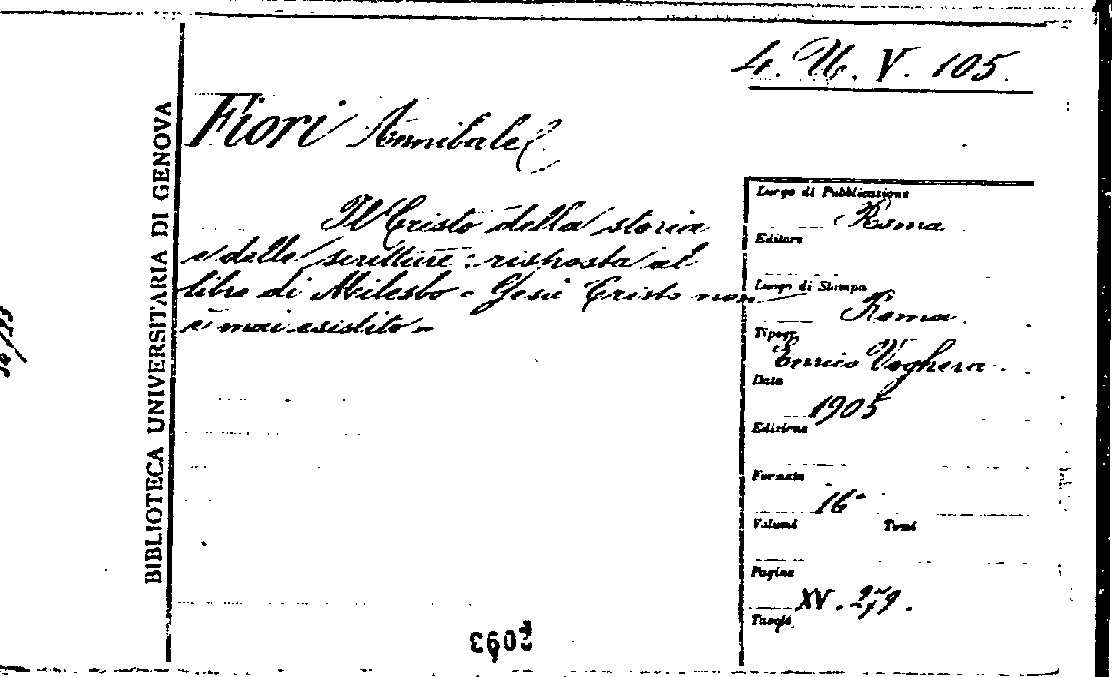 4. U. V. 105.
BIBLIOTECA UNIVERSITARIA DI GENOVA
Fiori Annibale
Il Cristo della storia
e delle scritture: risposta al
libro di Milesbo - Gesù Cristo non
è mai esistito -
Luogo di Pubblicazione
Roma
Editore
Luogo di Stampa
Roma.
Tipogr.
Enrico Voghera
Data
1905
Edizione
Formato
16°
Volumi Tomi
Pagine
XV. 279.
Tavole
2093